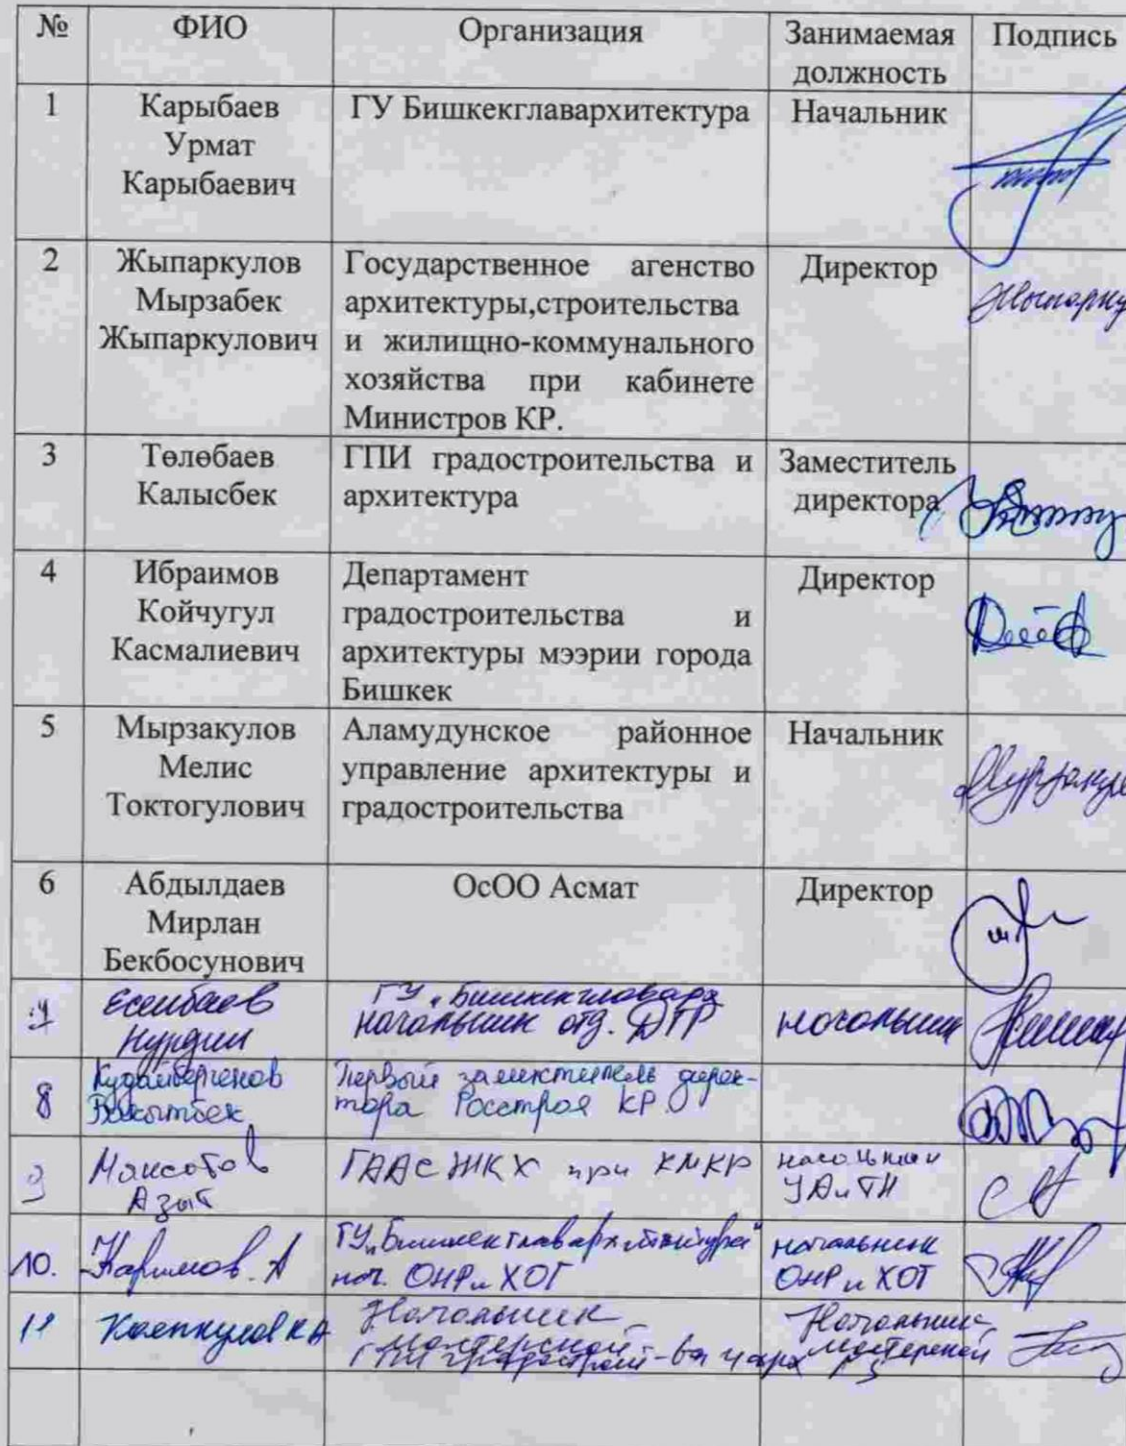 № ФИО Организация Занимаемая должность Подпись
1 Карыбаев Урмат Карыбаевич ГУ Бишкекглавархитектура Начальник
2 Жыпаркулов Мырзабек Жыпаркулович Государственное агенство архитектуры,строительства и жилищно-коммунального хозяйства при кабинете Министров КР. Директор
3 Төлөбаев Калысбек ГПИ градостроительства и архитектура Заместитель директора
4 Ибраимов Койчугул Касмалиевич Департамент градостроительства и архитектуры мээрии города Бишкек Директор
5 Мырзакулов Мелис Токтогулович Аламудунское районное управление архитектуры и градостроительства Начальник
6 Абдылдаев Мирлан Бекбосунович ОсОО Асмат Директор
7 Есенбаев Нурдин ГУ "Бишкекглаварх начальник отд. начальник
8 Кудайбергенов Бакытбек Первый заместитель директора Госстроя КР
9 Максатов Азыт ГААСЖКХ при КМКР начальник УАиТН
10. Каримов. А ГУ "Бишкекглавархитектура" нач. ОНРиХОГ начальник ОНР и ХОГ
11 Начальник мастерской ГПИ Начальник мастерской